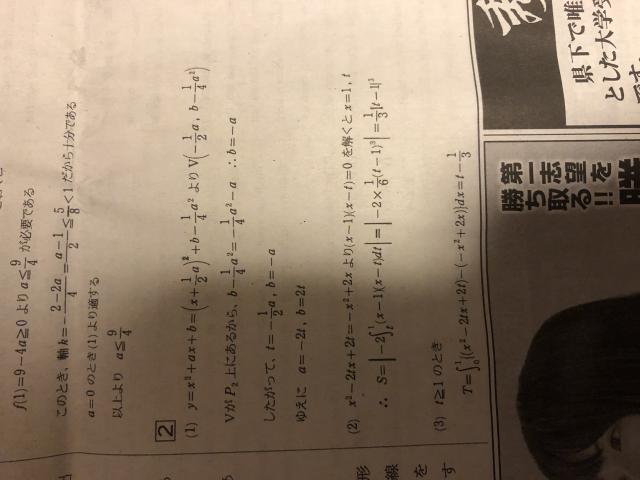 f(1)=9−4a≧0 より a≦9/4 が必要である
このとき、軸 k=−(2−2a)/4=(a−1)/2≦5/8<1 だから十分である
a=0 のとき(1)より適する
以上より a≦9/4
2
(1) y=x²+ax+b=(x+1/2a)²+b−1/4a² より V(−1/2a, b−1/4a²)
VがP₂上にあるから、b−1/4a²=−1/4a²−a ∴b=−a
したがって、t=−1/2a, b=−a
ゆえに a=−2t, b=2t
(2) x²−2tx+2t=−x²+2x より(x−1)(x−t)=0を解くと x=1, t
∴ S=|−2∫ₜ¹(x−1)(x−t)dt|=|−2×1/6(t−1)³|=1/3|t−1|³
(3) t≧1のとき
T=∫₀¹{(x²−2tx+2t)−(−x²+2x)}dx=t−1/3
形
線
を
す
県下で唯
とした大学受
です
第一志望を
勝ち取る!!!